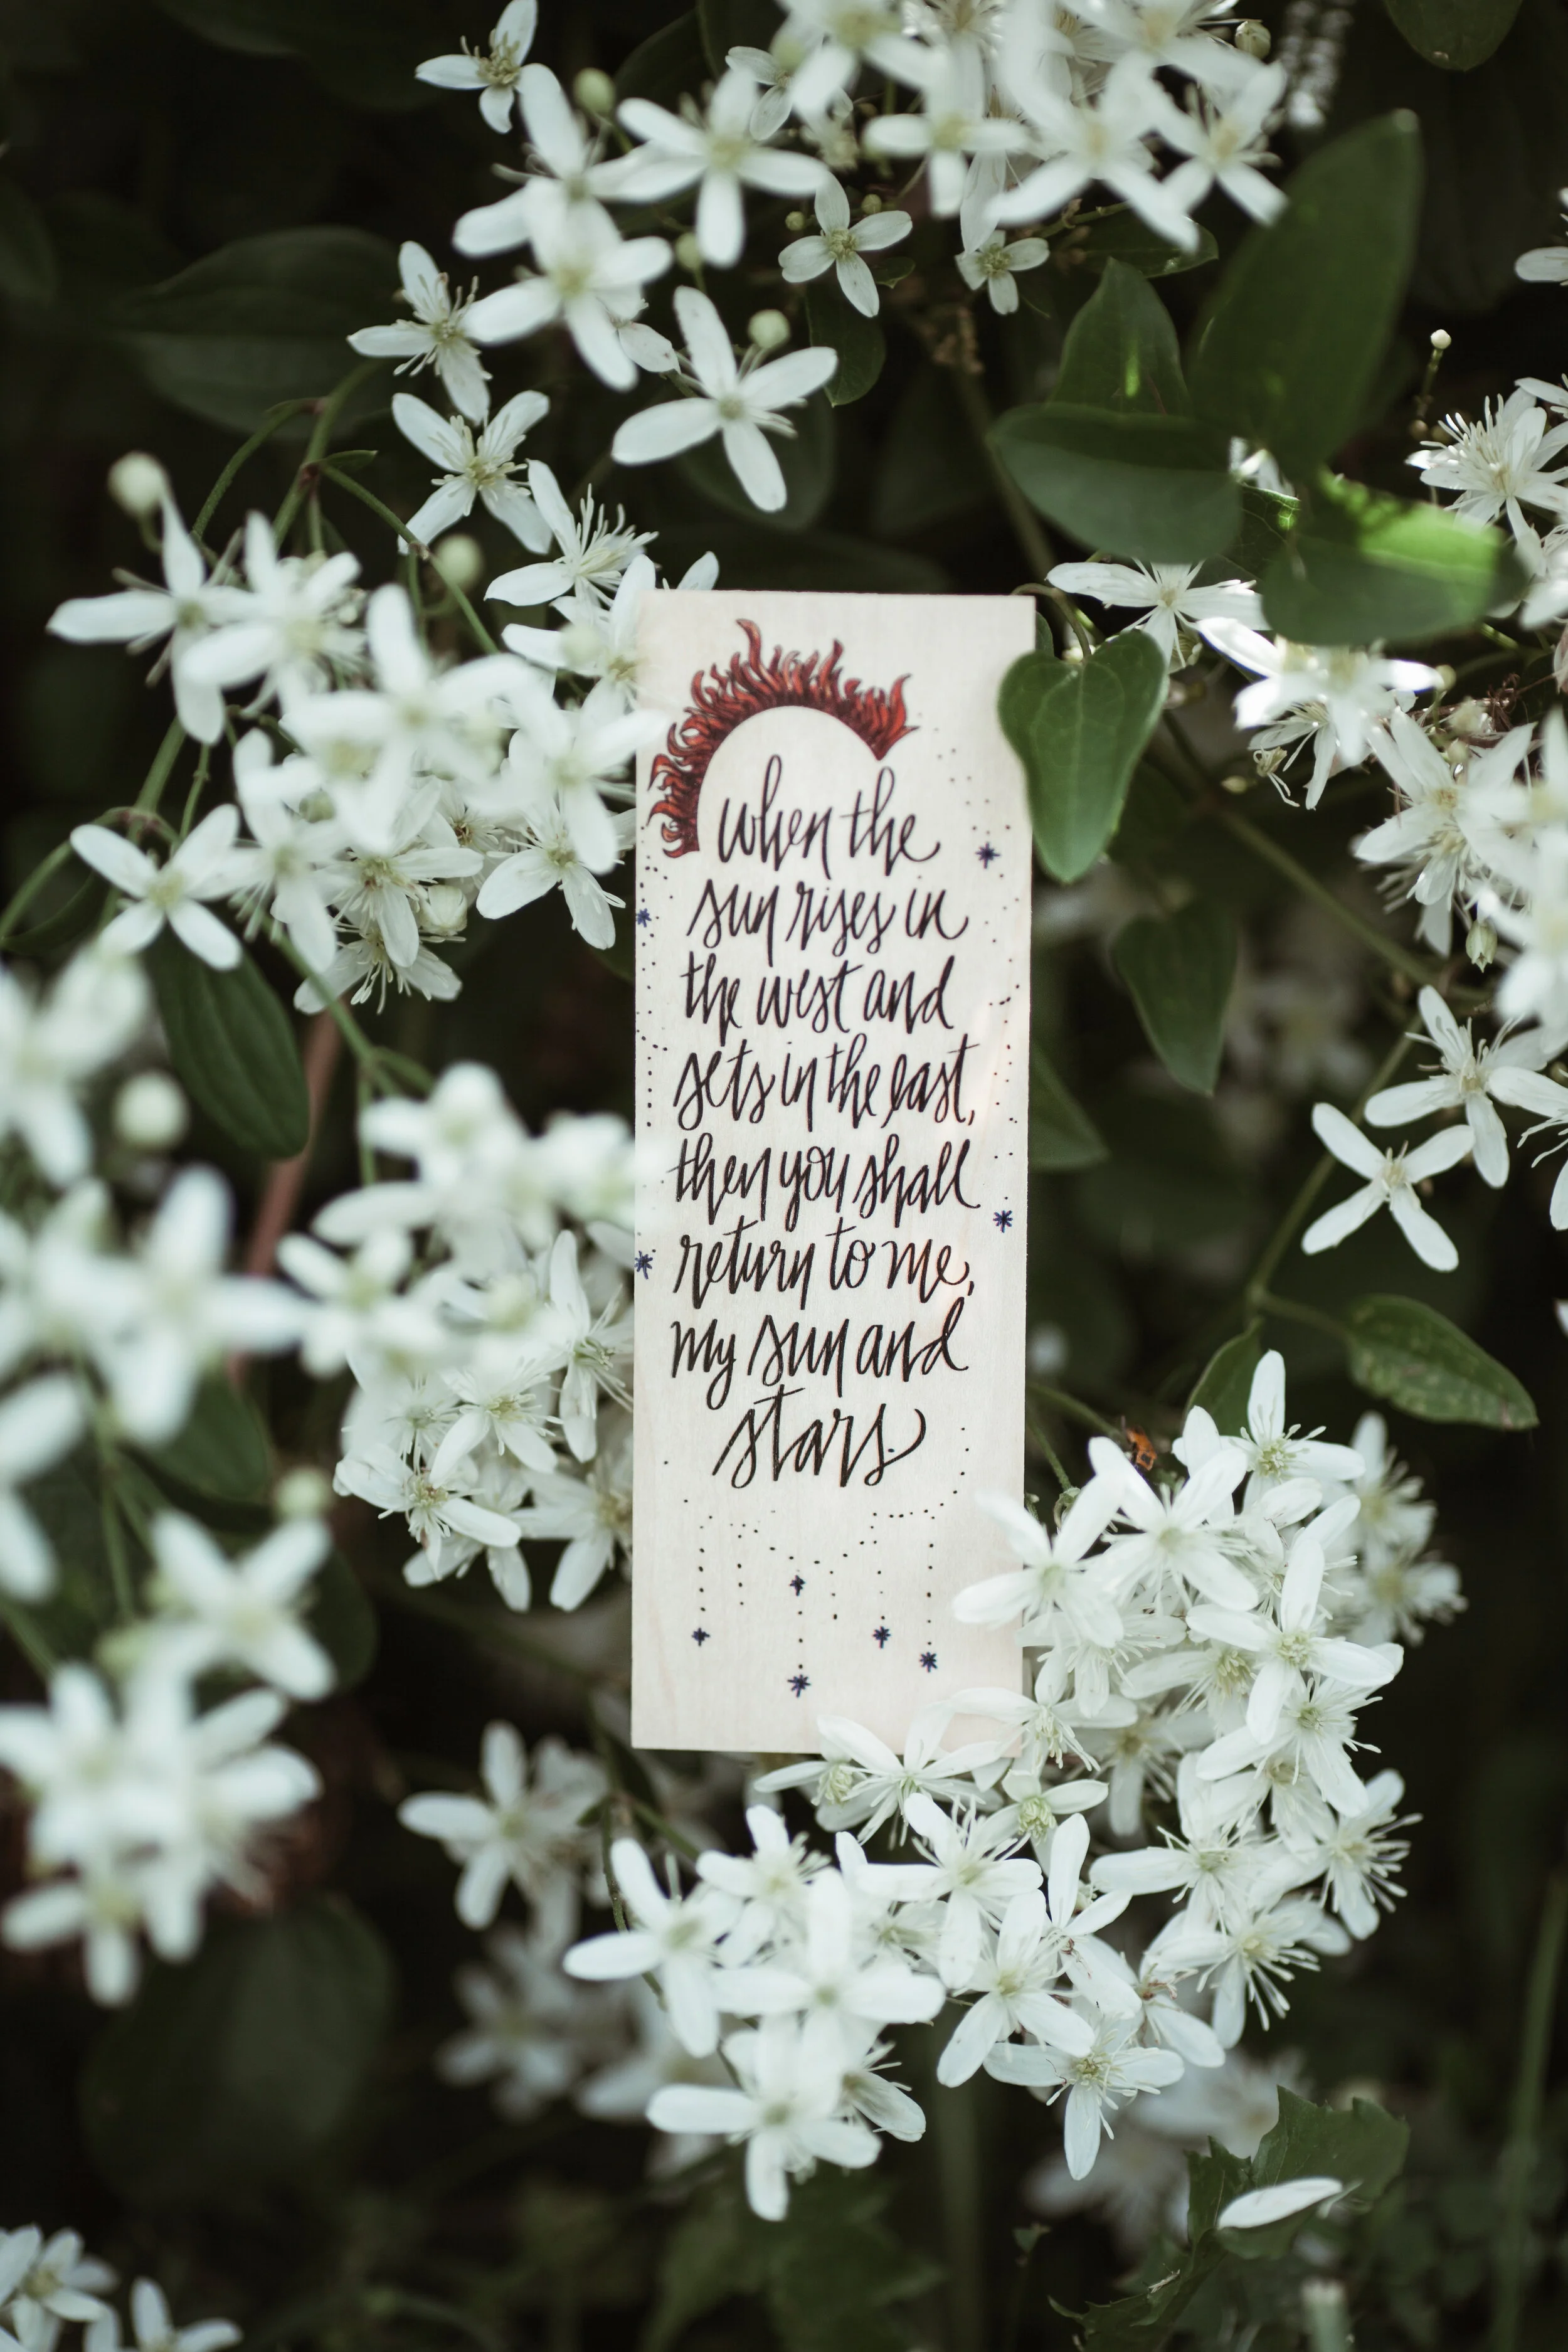 when the
sun rises in
the west and
sets in the east,
then you shall
return to me,
my sun and
stars.